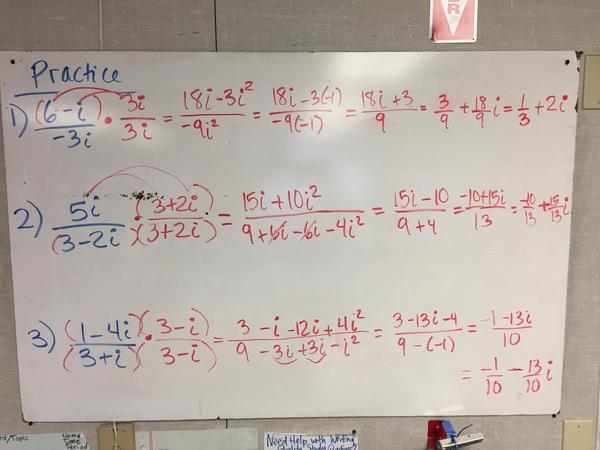 ER
Practice
1) (6-i)/-3i • 3i/3i = (18i-3i²)/-9i² = (18i-3(-1))/-9(-1) = (18i+3)/9 = 3/9 + 18/9 i = 1/3 + 2i
2) 5i/(3-2i) • (3+2i)/(3+2i) = (15i+10i²)/(9+6i-6i-4i²) = (15i-10)/(9+4) = (-10+15i)/13 = -10/13 + 15/13 i
3) (1-4i)/(3+i) • (3-i)/(3-i) = (3-i-12i+4i²)/(9-3i+3i-i²) = (3-13i-4)/(9-(-1)) = (-1-13i)/10
= -1/10 - 13/10 i
rd/Topic
Name
Date
Period
Need Help with Writing